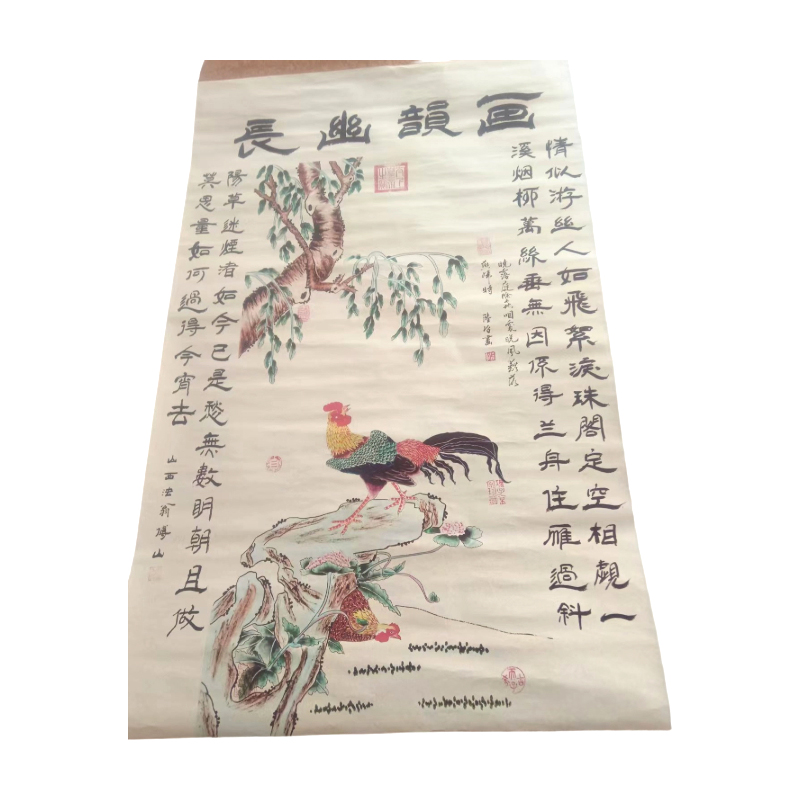 画韻幽長
情似游丝人如飛絮淚珠閣定空相覷一
溪烟柳萬絲垂無因係得兰舟住雁過斜
陽草迷煙渚如今已是愁無數明朝且做
莫思量如何過得今宵去
山西翁傅山